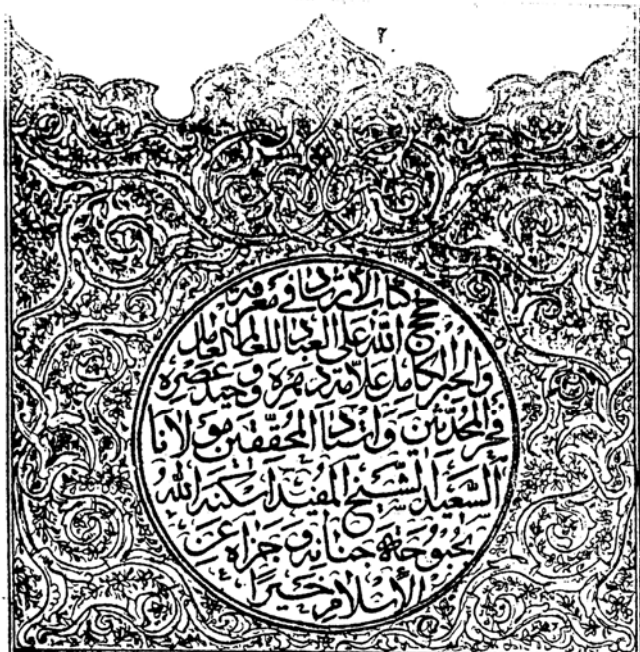 كتاب الإرشاد في معرفة
حجج الله على العباد للعالم العامل
والحبر الكامل علامة دهره وحيد عصره
فخر المحدثين واستاد المحققين مولانا
السعيد الشيخ المفيد اسكنه الله
بحبوحة جنانه وجزاه عن
الإسلام خيرا